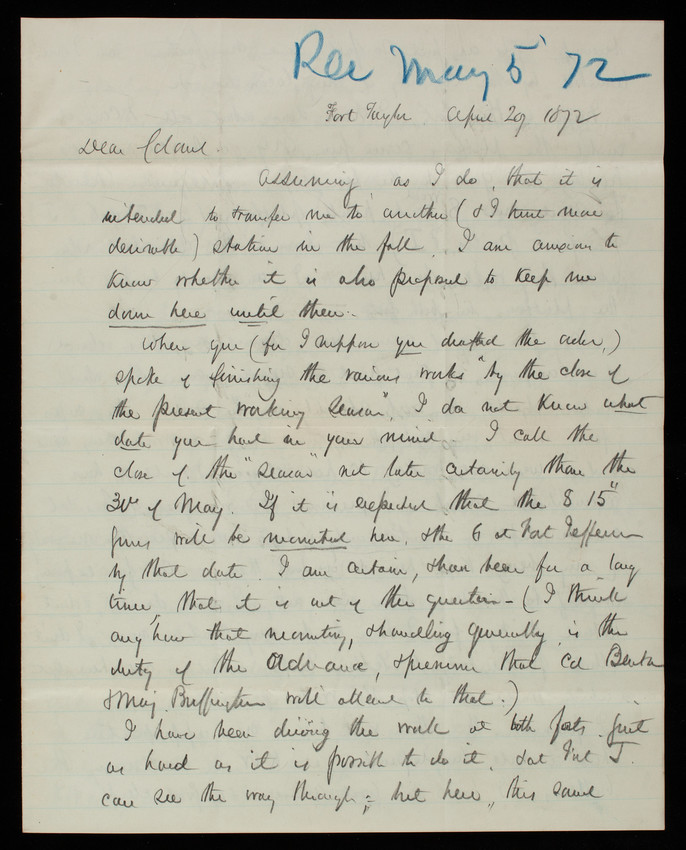 Rec May 5 72
Fort Taylor April 29 1872
Dear Colonel.
Assuming, as I do, that it is
intended to transfer me to another (& I trust more
desirable) station in the fall. I am anxious to
know whether it is also proposed to keep me
down here until then.
When you (for I suppose you drafted the order,)
spoke of finishing the various works "by the close of
the present working season", I do not know what
date you had in your mind. I call the
close of the "season" not later certainly than the
30th of May. If it is expected that the 8 15"
guns will be mounted here, & the 6 at Fort Jefferson
by that date, I am certain, & have been for a long
time, that it is out of the question - (I think
anyhow that mounting, & handling generally is the
duty of the Ordnance, & presume that Col Benton
& Maj. Buffington will attend to that.)
I have been driving the work at both forts just
as hard as it is possible to do it, & at Fort J.
can see the way through; but here, this same